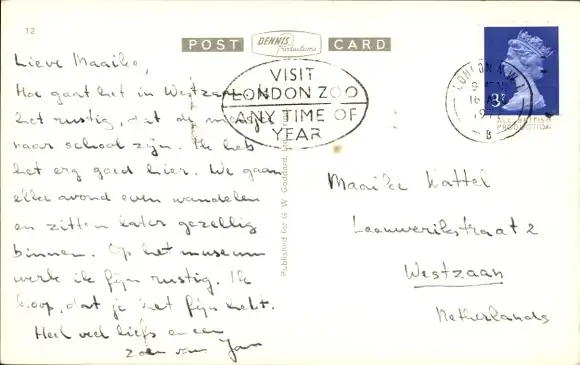 12
POST DENNIS Productions CARD
Lieve Maaike,
Hoe gaat het in Westzaan. Is
het rustig, dat de meisjes
naar school zijn. Ik heb
het erg goed hier. We gaan
elke avond even wandelen
en zitten later gezellig
binnen. Op het museum
werk ik fijn rustig. Ik
hoop, dat je het fijn hebt.
Heel veel liefs en een
zoen van Jan
VISIT
LONDON ZOO
ANY TIME OF
YEAR
Published for G. W. Goddard,
LONDON N.W.1
16
197
B
3P
ALL BRITISH
PRODUCTION
Maaike Kattel
Leeuwerikstraat 2
Westzaan
Netherlands